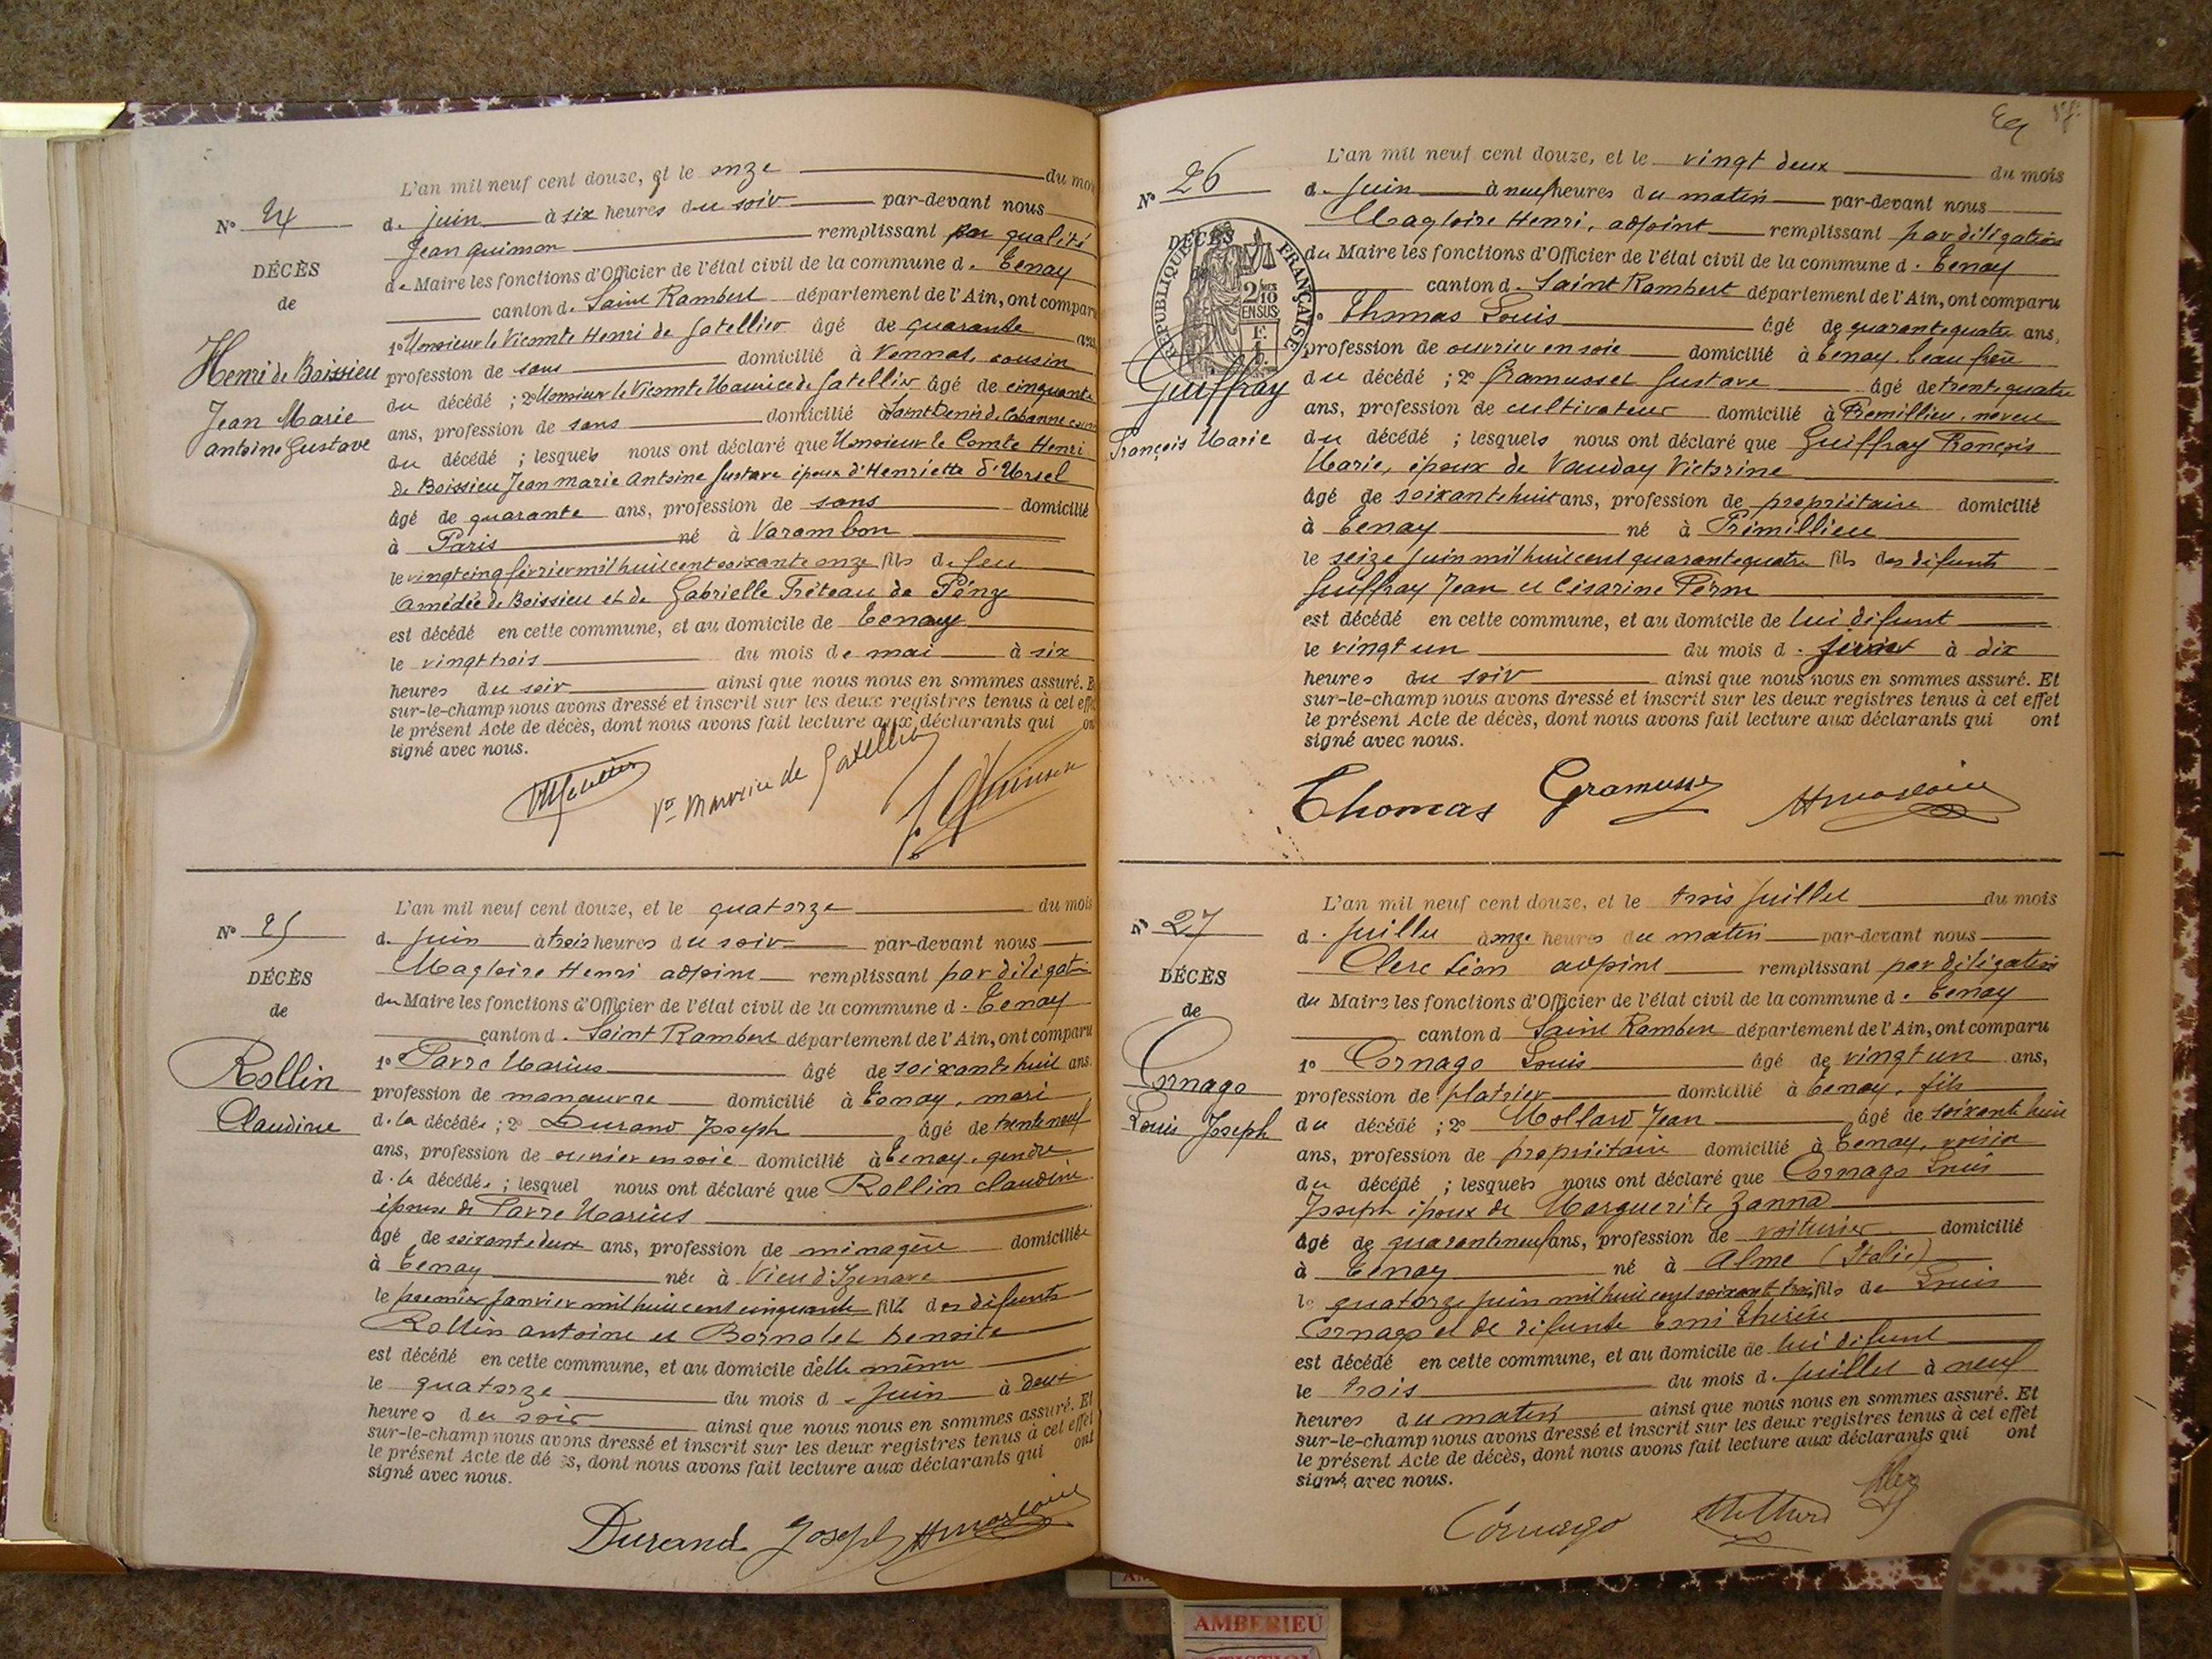 L'an mil neuf cent douze, et le onze du mois
N° 24
d. juin à six heures du soir par-devant nous
Jean quinson remplissant par qualité
DÉCÈS
de Maire les fonctions d'Officier de l'état civil de la commune d. Tenay
de
canton d. Saint Rambert département de l'Ain, ont comparu
1° Monsieur le Vicomte Henri de Gatellier âgé de quarante ans
Henri de Boissieu
profession de sans domicilié à cousin
du décédé ; 2° Monsieur le Vicomte Maurice de Gatellier âgé de cinquante
Jean Marie
ans, profession de sans domicilié à Saint Denis de Cabanne
antoine Gustave
du décédé ; lesquels nous ont déclaré que Monsieur le Comte Henri
de Boissieu Jean Marie Antoine Gustave époux d'Henriette d'Ursel
âgé de quarante ans, profession de sans domicilié
à Paris né à Varambon
le vingt cinq février mil huit cent soixante onze fils de feu
Amédée de Boissieu et de Gabrielle Tréteau de
est décédé en cette commune, et au domicile de Tenay
le vingt trois du mois de mai à six
heures du soir ainsi que nous nous en sommes assuré. Et
sur-le-champ nous avons dressé et inscrit sur les deux registres tenus à cet effet
le présent Acte de décès, dont nous avons fait lecture aux déclarants qui ont
signé avec nous.
Vte Maurice de Gatellier J. Quinson
L'an mil neuf cent douze, et le quatorze du mois
N° 25
d. juin à trois heures du soir par-devant nous
Magloire Henri adjoint remplissant par délégation
DÉCÈS
du Maire les fonctions d'Officier de l'état civil de la commune d. Tenay
de
canton d. Saint Rambert département de l'Ain, ont comparu
1° Favre Marius âgé de soixante huit ans.
Rollin
profession de manœuvre domicilié à Tenay, mari
Claudine
d. la décédée ; 2° Durand Joseph âgé de trente neuf
ans, profession de ouvrier en soie domicilié à Tenay, gendre
d. la décédée ; lesquel nous ont déclaré que Rollin Claudine
épouse de Favre Marius
âgé de soixante deux ans, profession de ménagère domiciliée
à Tenay née à Vieu d'Izenave
le premier janvier mil huit cent cinquante fille des défunts
Rollin antoine et Bornalet benoite
est décédé en cette commune, et au domicile d'elle même
le quatorze du mois d. juin à deux
heures du soir ainsi que nous nous en sommes assuré. Et
sur-le-champ nous avons dressé et inscrit sur les deux registres tenus à cet effet
le présent Acte de décès, dont nous avons fait lecture aux déclarants qui ont
signé avec nous.
Durand Joseph HMagloire
L'an mil neuf cent douze, et le vingt deux du mois
N° 26
d. juin à neuf heures du matin par-devant nous
Magloire Henri, adjoint remplissant par délégation
DÉCÈS
RÉPUBLIQUE FRANÇAISE
2/10 EN SUS
du Maire les fonctions d'Officier de l'état civil de la commune d. Tenay
canton d. Saint Rambert département de l'Ain, ont comparu
1° Thomas Louis âgé de quarante quatre ans,
profession de ouvrier en soie domicilié à Tenay, beau frère
Guiffray
du décédé ; 2° Gramusset Gustave âgé de trente quatre
ans, profession de cultivateur domicilié à Prémillieu, neveu
François Marie
du décédé ; lesquels nous ont déclaré que Guiffray François
Marie, époux de Vauday Victorine
âgé de soixante huit ans, profession de propriétaire domicilié
à Tenay né à Prémillieu
le seize juin mil huit cent quarante quatre fils des défunts
Guiffray Jean et Césarine
est décédé en cette commune, et au domicile de lui défunt
le vingt un du mois d. à dix
heures du soir ainsi que nous nous en sommes assuré. Et
sur-le-champ nous avons dressé et inscrit sur les deux registres tenus à cet effet
le présent Acte de décès, dont nous avons fait lecture aux déclarants qui ont
signé avec nous.
Thomas Gramusset HMagloire
L'an mil neuf cent douze, et le trois juillet du mois
N° 27
d. juillet à onze heures du matin par-devant nous
Clerc Léon adjoint remplissant par délégation
DÉCÈS
du Maire les fonctions d'Officier de l'état civil de la commune d. Tenay
de
canton d Saint Rambert département de l'Ain, ont comparu
1° Cornago Louis âgé de vingt un ans,
Cornago
profession de platrier domicilié à Tenay, fils
Louis Joseph
du décédé ; 2° Mollard Jean âgé de soixante huit
ans, profession de propriétaire domicilié à Tenay, voisin
du décédé ; lesquels nous ont déclaré que Cornago Louis
Joseph époux de Marguerite Zanna
âgé de quarante neuf ans, profession de voiturier domicilié
à Tenay né à Alme (Italie)
le quatorze juin mil huit cent soixante trois fils de Louis
Cornago et de défunte Thérèse
est décédé en cette commune, et au domicile de lui défunt
le trois du mois d. juillet à neuf
heures du matin ainsi que nous nous en sommes assuré. Et
sur-le-champ nous avons dressé et inscrit sur les deux registres tenus à cet effet
le présent Acte de décès, dont nous avons fait lecture aux déclarants qui ont
signé avec nous.
Cornago Mollard
AMBERIEU